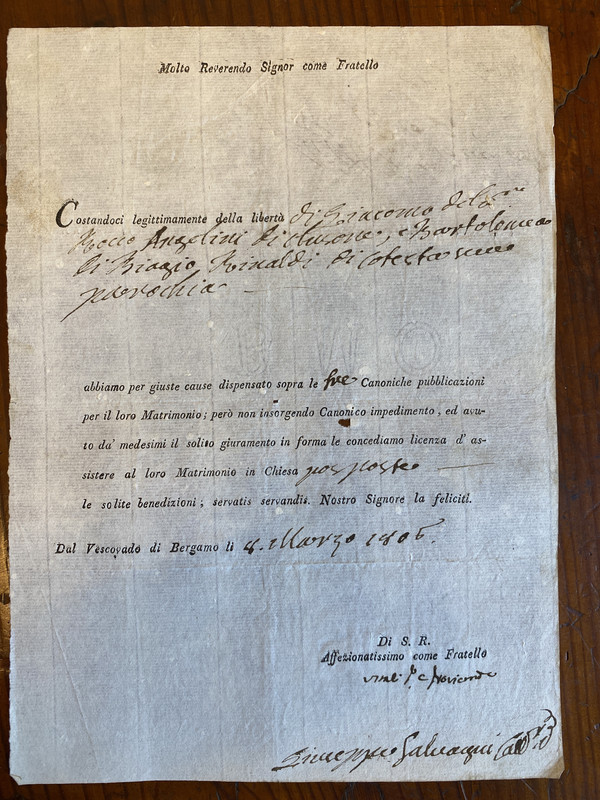 Molto Reverendo Signor come Fratello
Costandoci legittimamente della libertà di Giacomo del
Rocco Angelini di Clusone, e Bartolomea
di Biagio Rinaldi di cotesta sua
parochia
abbiamo per giuste cause dispensato sopra le tre Canoniche pubblicazioni
per il loro Matrimonio; però non insorgendo Canonico impedimento, ed avu-
to da' medesimi il solito giuramento in forma le concediamo licenza d' as-
sistere al loro Matrimonio in Chiesa posposte
le solite benedizioni; servatis servandis. Nostro Signore la feliciti.
Dal Vescovado di Bergamo li 8. Marzo 1806.
Di S. R.
Affezionatissimo come Fratello
Giuseppe